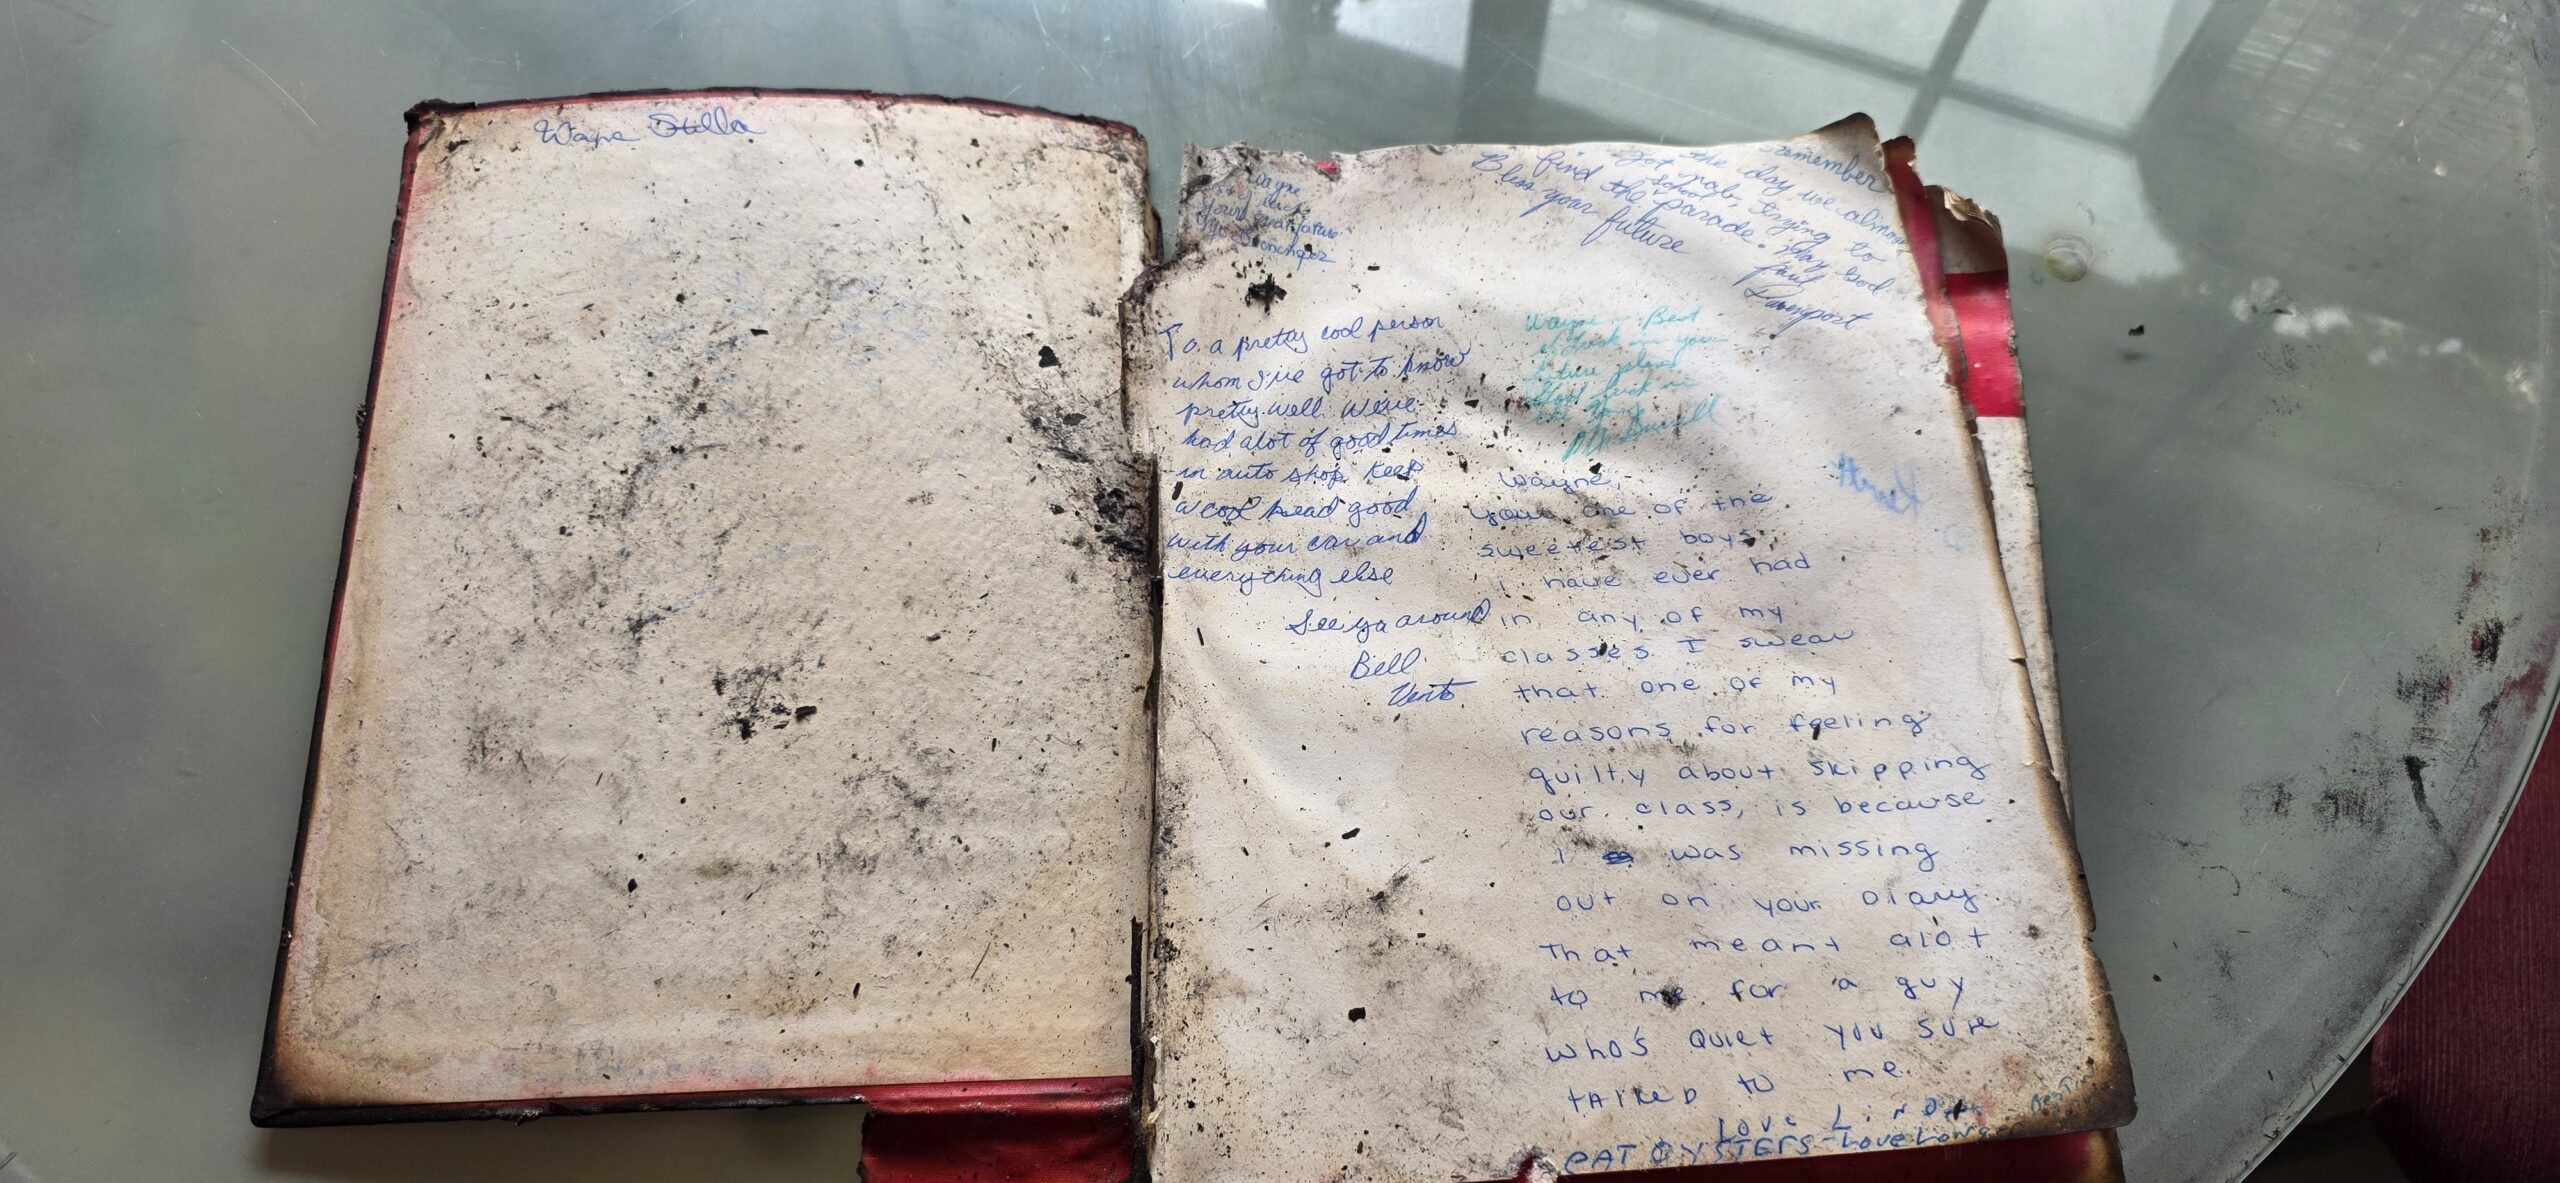 Wayne
Your
To a pretty cool person
whom I've got to know
pretty well. We've
had alot of good times
in auto shop. Keep
a cool head good
with your car and
everything else
See ya around
Bell
remember
the day we almost
got mob, trying to
find the school parade. May God
Bless your future
Paul
Davenport
Wayne - Best
of luck in your
future plans
Good luck in
Mr.
Wayne,
your one of the
sweetest boys
i have ever had
in any of my
classes. I swear
that one of my
reasons for feeling
guilty about skipping
our class, is because
i was missing
out on your Diary.
That meant alot
to me for a guy
who's Quiet you sure
TAlkeD to me.
Love
eAT OYSTERS - Love Longer